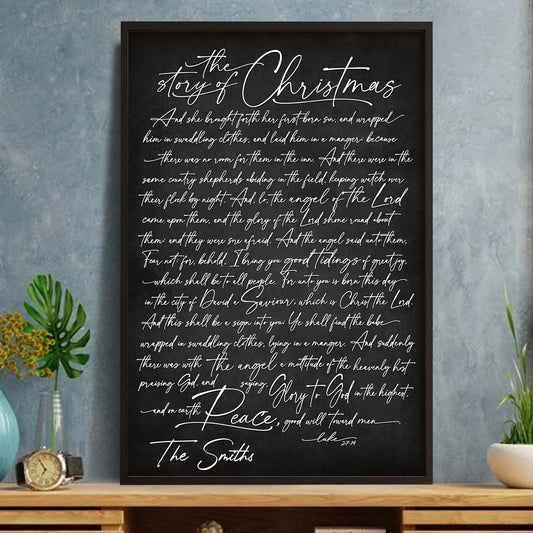 the
story of Christmas
And she brought forth her first-born son, and wrapped
him in swaddling clothes, and laid him in a manger; because
there was no room for them in the inn. And there were in the
same country shepherds abiding in the field, keeping watch over
their flock by night. And, lo, the angel of the Lord
came upon them, and the glory of the Lord shone round about
them: and they were sore afraid. And the angel said unto them,
Fear not: for, behold, I bring you good tidings of great joy,
which shall be to all people. For unto you is born this day
in the city of David a Saviour, which is Christ the Lord.
And this shall be a sign unto you; Ye shall find the babe
wrapped in swaddling clothes, lying in a manger. And suddenly
there was with the angel a multitude of the heavenly host
praising God, and saying, Glory to God in the highest,
and on earth Peace, good will toward men.
Luke 2:7-14
The Smiths